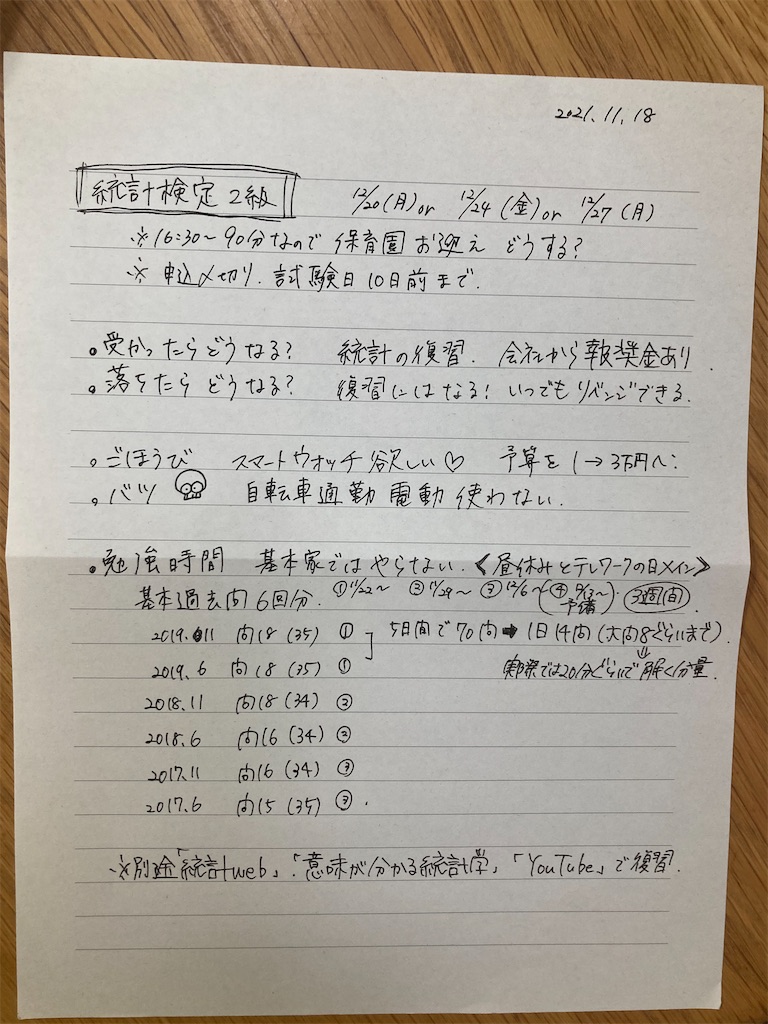 2021.11.18
統計検定 2級 12/20(月)or 12/24(金)or 12/27(月)
※16:30〜90分なので 保育園お迎え どうする?
※ 申込〆切り. 試験日10日前まで.
・受かったらどうなる? 統計の復習. 会社から報奨金あり.
・落ちたら どうなる? 復習にはなる! いつでもリベンジできる.
・ごほうび スマートウォッチ欲しい♡ 予算を1→3万円へ.
・バツ 自転車通勤電動使わない.
・勉強時間 基本家ではやらない.《昼休みとテレワークの日メイン》
基本過去問6回分. ①11/22〜 ②11/29〜 ③12/6〜 (④12/13〜 予備) 3週間
2019.11 問18(35) ① 5日間で70問➡1日14問(大問8ぐらいまで).
2019.6 問18(35) ① ⇓実際では20分ぐらいで解く分量.
2018.11 問18(34) ②
2018.6 問16(34) ②
2017.11 問16(34) ③
2017.6 問15(35) ③.
※別途「統計web」.「意味が分かる統計学」「YouTube」で復習.